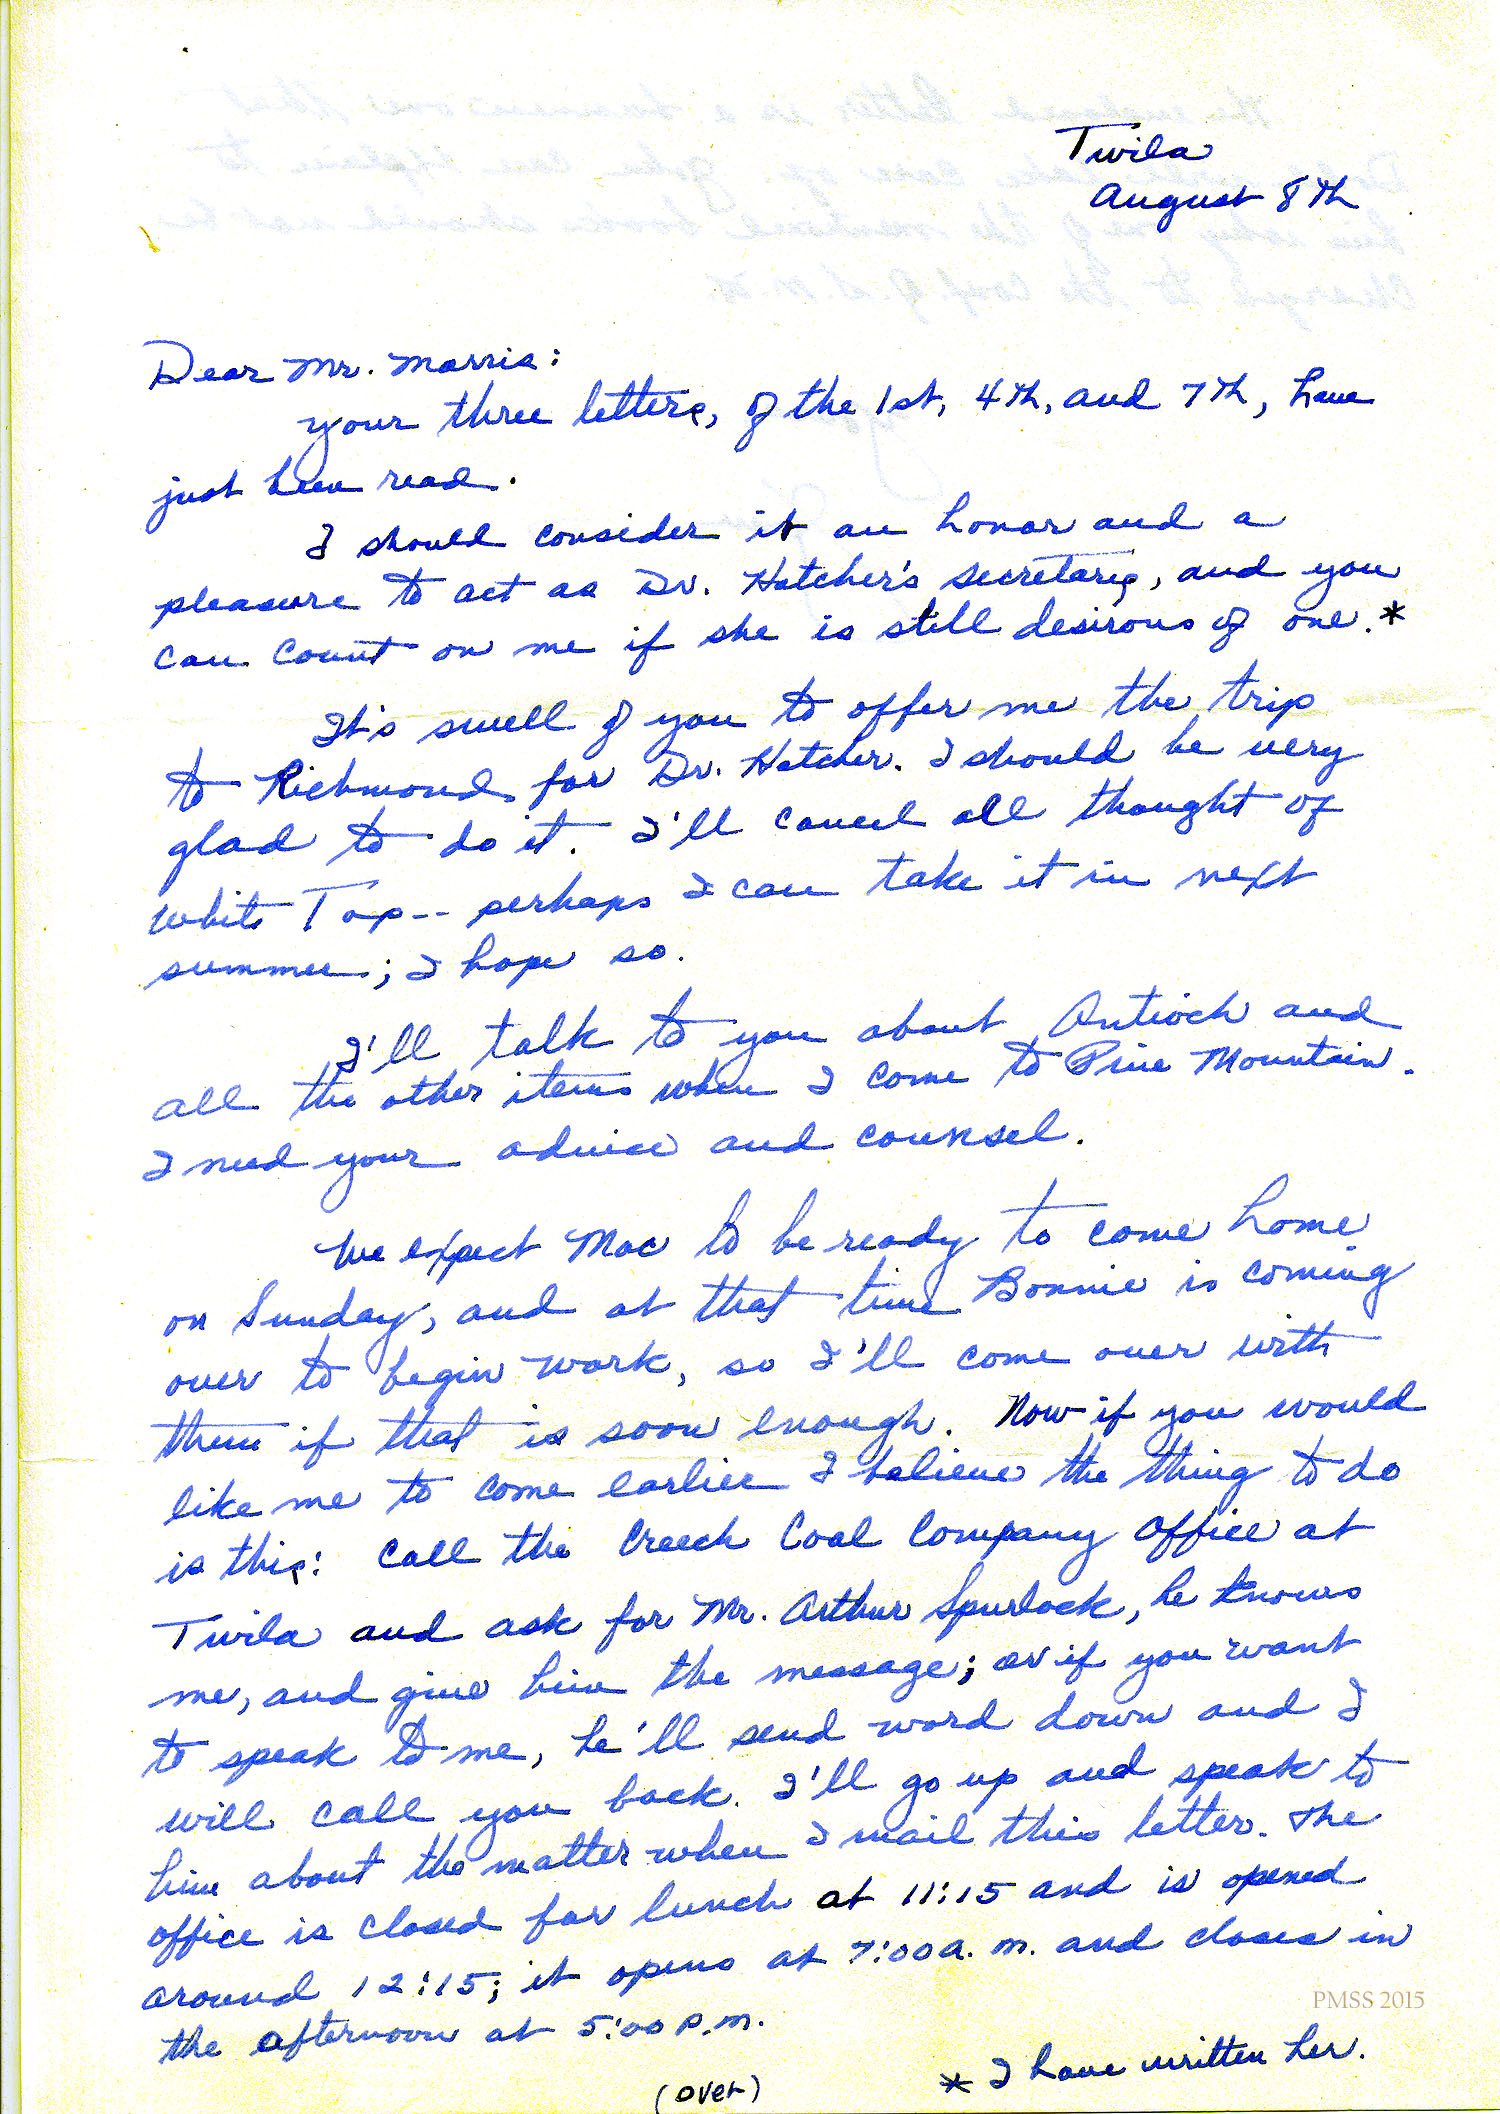 Twila
August 8th
Dear Mr. Morris:
Your three letters, of the 1st, 4th, and 7th, have
just been read.
I should consider it an honor and a
pleasure to act as Dr. Hatcher's secretary, and you
can count on me if she is still desirous of one.*
It's swell of you to offer me the trip
to Richmond for Dr. Hatcher. I should be very
glad to do it. I'll cancel all thought of
White Top -- perhaps I can take it in next
summer; I hope so.
I'll talk to you about Antioch and
all the other items when I come to Pine Mountain.
I need your advice and counsel.
We expect Mac to be ready to come home
on Sunday, and at that time Bonnie is coming
over to begin work, so I'll come over with
them if that is soon enough. Now if you would
like me to come earlier I believe the thing to do
is this: Call the Creech Coal Company office at
Twila and ask for Mr. Arthur Spurlock, he knows
me, and give him the message; or if you want
to speak to me, he'll send word down and I
will call you back. I'll go up and speak to
him about the matter when I mail this letter. The
office is closed for lunch at 11:15 and is opened
around 12:15; it opens at 7:00 a.m. and closes in
the afternoon at 5:00 p.m.
PMSS 2015
* I have written her.
(over)